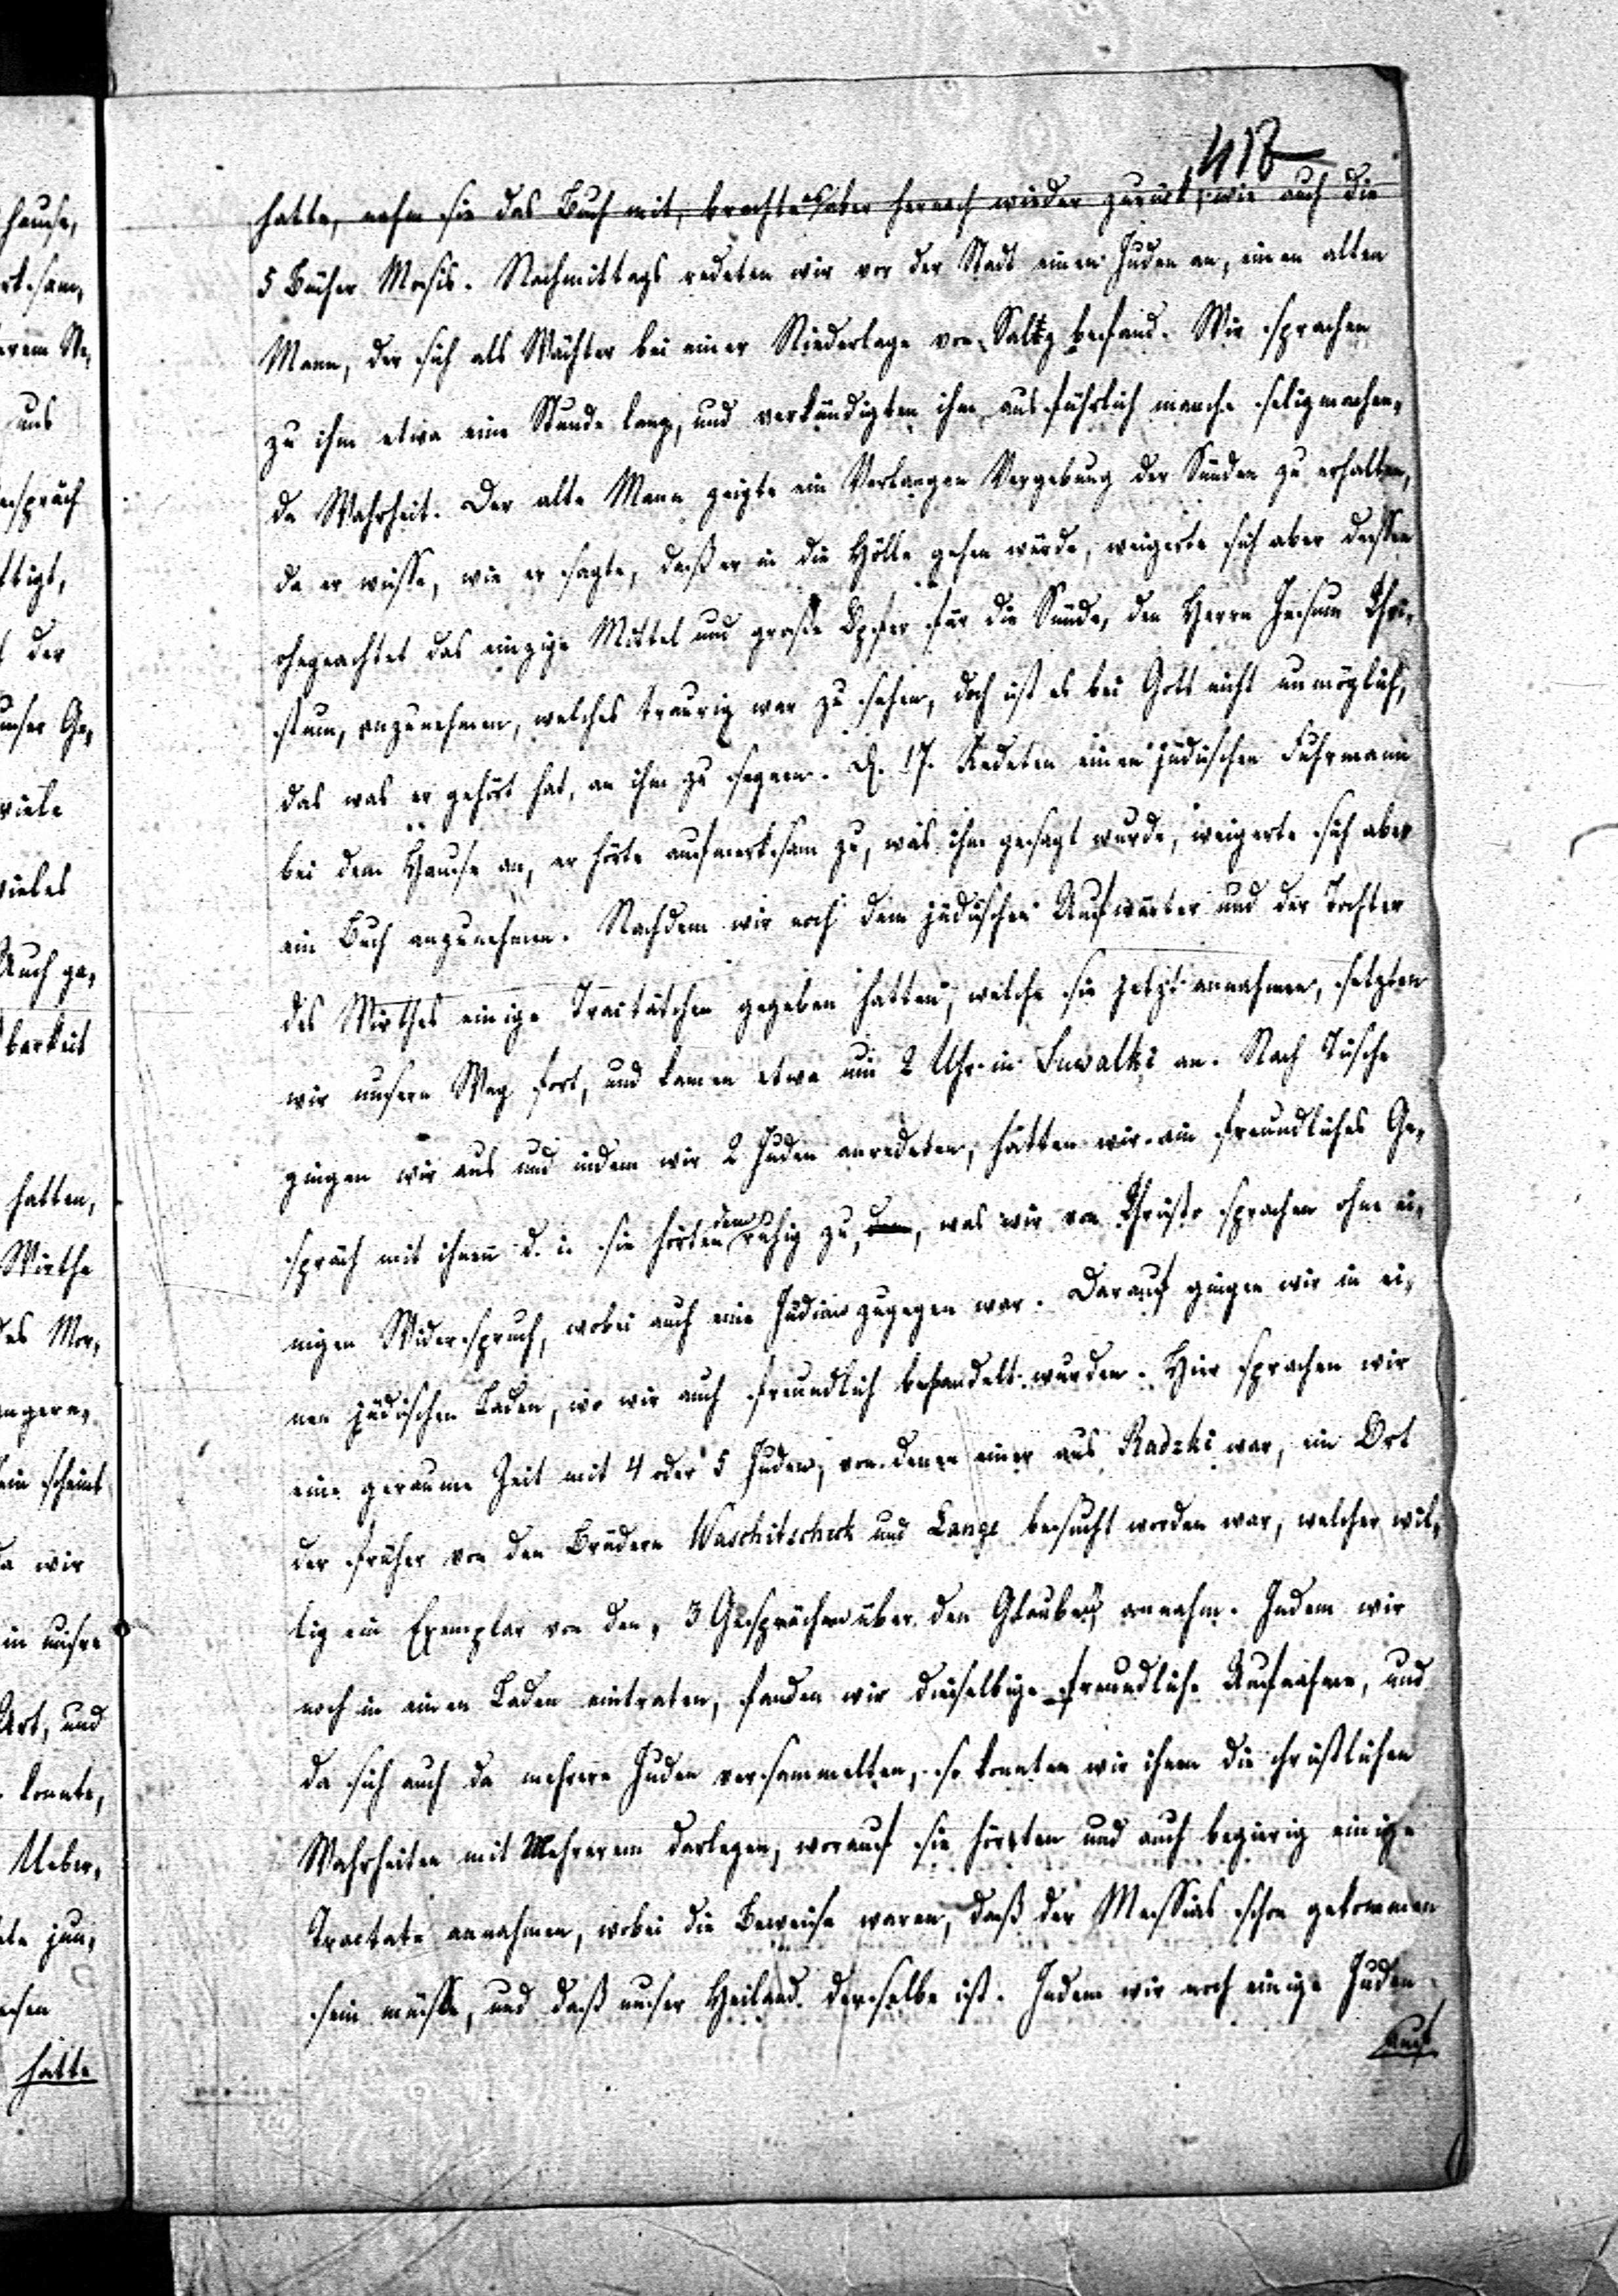 418
hatte, nahm sie das Buch mit, brachte es aber hernach wieder zurück, wie auch die
5 Bücher Mosis. Nachmittags redeten wir vor der Stadt einen Juden an, einen alten
Mann, der sich als Wächter bei einer Niederlage von Saltz befand. Wir sprachen
zu ihm etwa eine Stunde lang, und verkündigten ihm ausführlich manche seligmachen,
de Wahrheit. Der alte Mann zeigte ein Verlangen Vergebung der Sünden zu erhalten,
da er wisse, wie er sagte, daß er in die Hölle gehen würde, weigerte sich aber dessen
ohngeachtet das einzige Mittel und große Opfer für die Sünde, den Herrn Jesum Chri,
stum, anzunehmen, welches traurig war zu sehen, doch ist es bei Gott nicht unmöglich,
das was er gehört hat, an ihm zu segnen. d. 17. Redeten einen jüdischen Fuhrmann
bei dem Hause an, er hörte aufmerksam zu, was ihm gesagt wurde, weigerte sich aber
ein Buch anzunehmen. Nachdem wir noch dem jüdischen Aufwärter und der Tochter
des Wirthes einige Tractätchen gegeben hatten, welche sie jetzt annahmen, setzten
wir unsern Weg fort, und kamen etwa um 2 Uhr in Suwalki an. Nach Tische
gingen wir aus und indem wir 2 Juden anredeten, hatten wir ein freundliches Ge,
spräch mit ihnen d. i. sie hörten dem ruhig zu, was wir von Christo sprachen ohne ei,
nigen Widerspruch, wobei auch eine Jüdin zugegen war. Darauf gingen wir in ei,
nen jüdischen Laden, wo wir auch freundlich behandelt wurden. Hier sprachen wir
eine geraume Zeit mit 4 oder 5 Juden, von denen einer aus Radzki war, ein Ort
der früher von den Brüdern Waschitscheck und Lange besucht worden war, welcher wil,
lig ein Exemplar von den „3 Gesprächen über den Glauben“ annahm. Indem wir
noch in einen Laden eintraten, fanden wir dieselbige freundliche Aufnahme, und
da sich auch da mehrere Juden versammelten, so konnten wir ihnen die christlichen
Wahrheiten mit Mehrerem darlegen, worauf sie hörten und auch begierig einige
Tractate annahmen, wobei die Beweise waren, daß der Messias schon gekommen
sein müsse, und daß unser Heiland derselbe ist. Indem wir noch einige Juden
auf